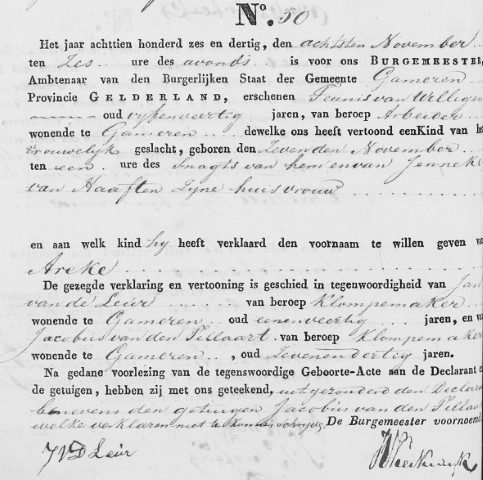 N.º 50
Het jaar achttien honderd zes en dertig, den achtsten November
ten Zes ure des avonds is voor ons BURGEMEESTE
Ambtenaar van den Burgerlijken Staat der Gemeente Gameren
Provincie GELDERLAND, erschenen Teunis van Willigen
oud vyfenveertig jaren, van beroep Arbeider
wonende te Gameren dewelke ons heeft vertoond een Kind van h
vrouwelyk geslacht, geboren den Zevenden November
ten een ure des Snagts van hem en van Jenneke
van Haaften Zyne huisvrouw
en aan welk kind hy heeft verklaard den voornaam te willen geven v
Areke
De gezegde verklaring en vertooning is geschied in tegenwoordigheid van Jan
van de Leur van beroep Klompemaker
wonende te Gameren oud eenenveertig jaren, en v
Jacobus van den Tillaart van beroep Klompemaker
wonende te Gameren, oud Zevenendertig jaren.
Na gedane voorlezing van de tegenswoordige Geboorte-Acte aan de Declarant
de getuigen, hebben zij met ons geteekend, uitgezonderd den Declara
benevens den getuigen Jacobus van den Tillaa
welke verklaren niet te konnen schryven De Burgemeester voornoemd
JVD Leur